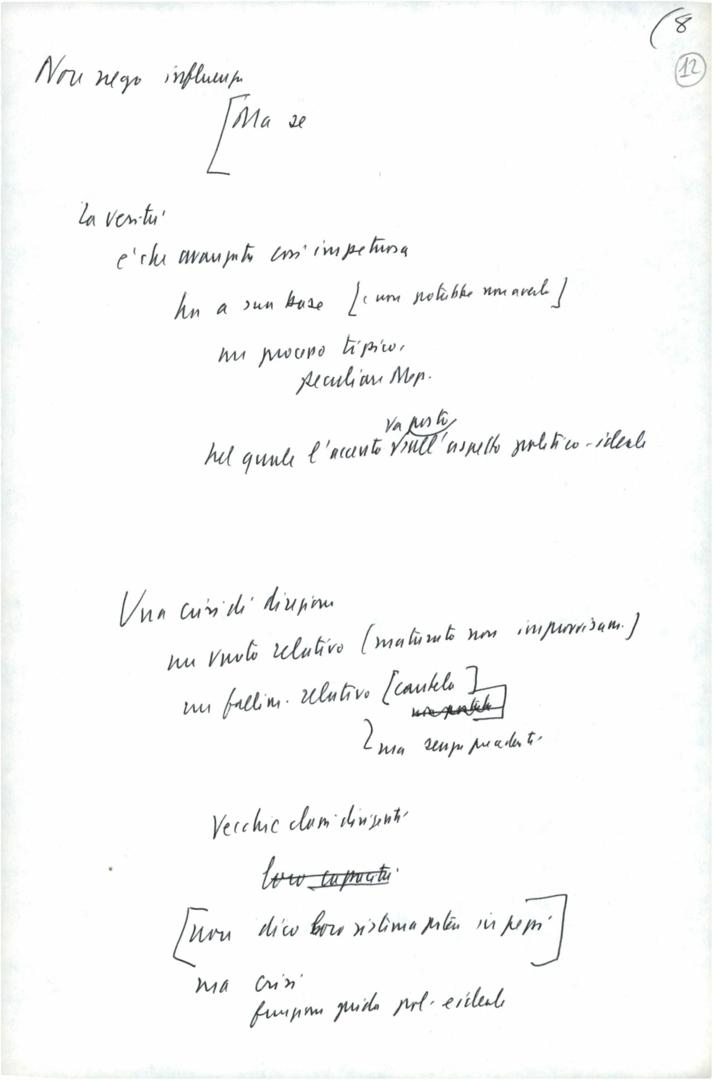 (8
12
Non nego influenza
[Ma se
La verità
è che avanzata così impetuosa
ha a sua base [e non potrebbe non averla]
un processo tipico,
peculiare Mezz.
va posto
nel quale l'accento sull'aspetto politico-ideale
Una crisi di direzione
un vuoto relativo (maturato non improvvisam.)
un fallim. relativo [cautela]
ma senza precedenti
Vecchie classi dirigenti
loro capacità
[non dico loro sistema potere in pezzi]
ma crisi
funzione guida pol. e ideale